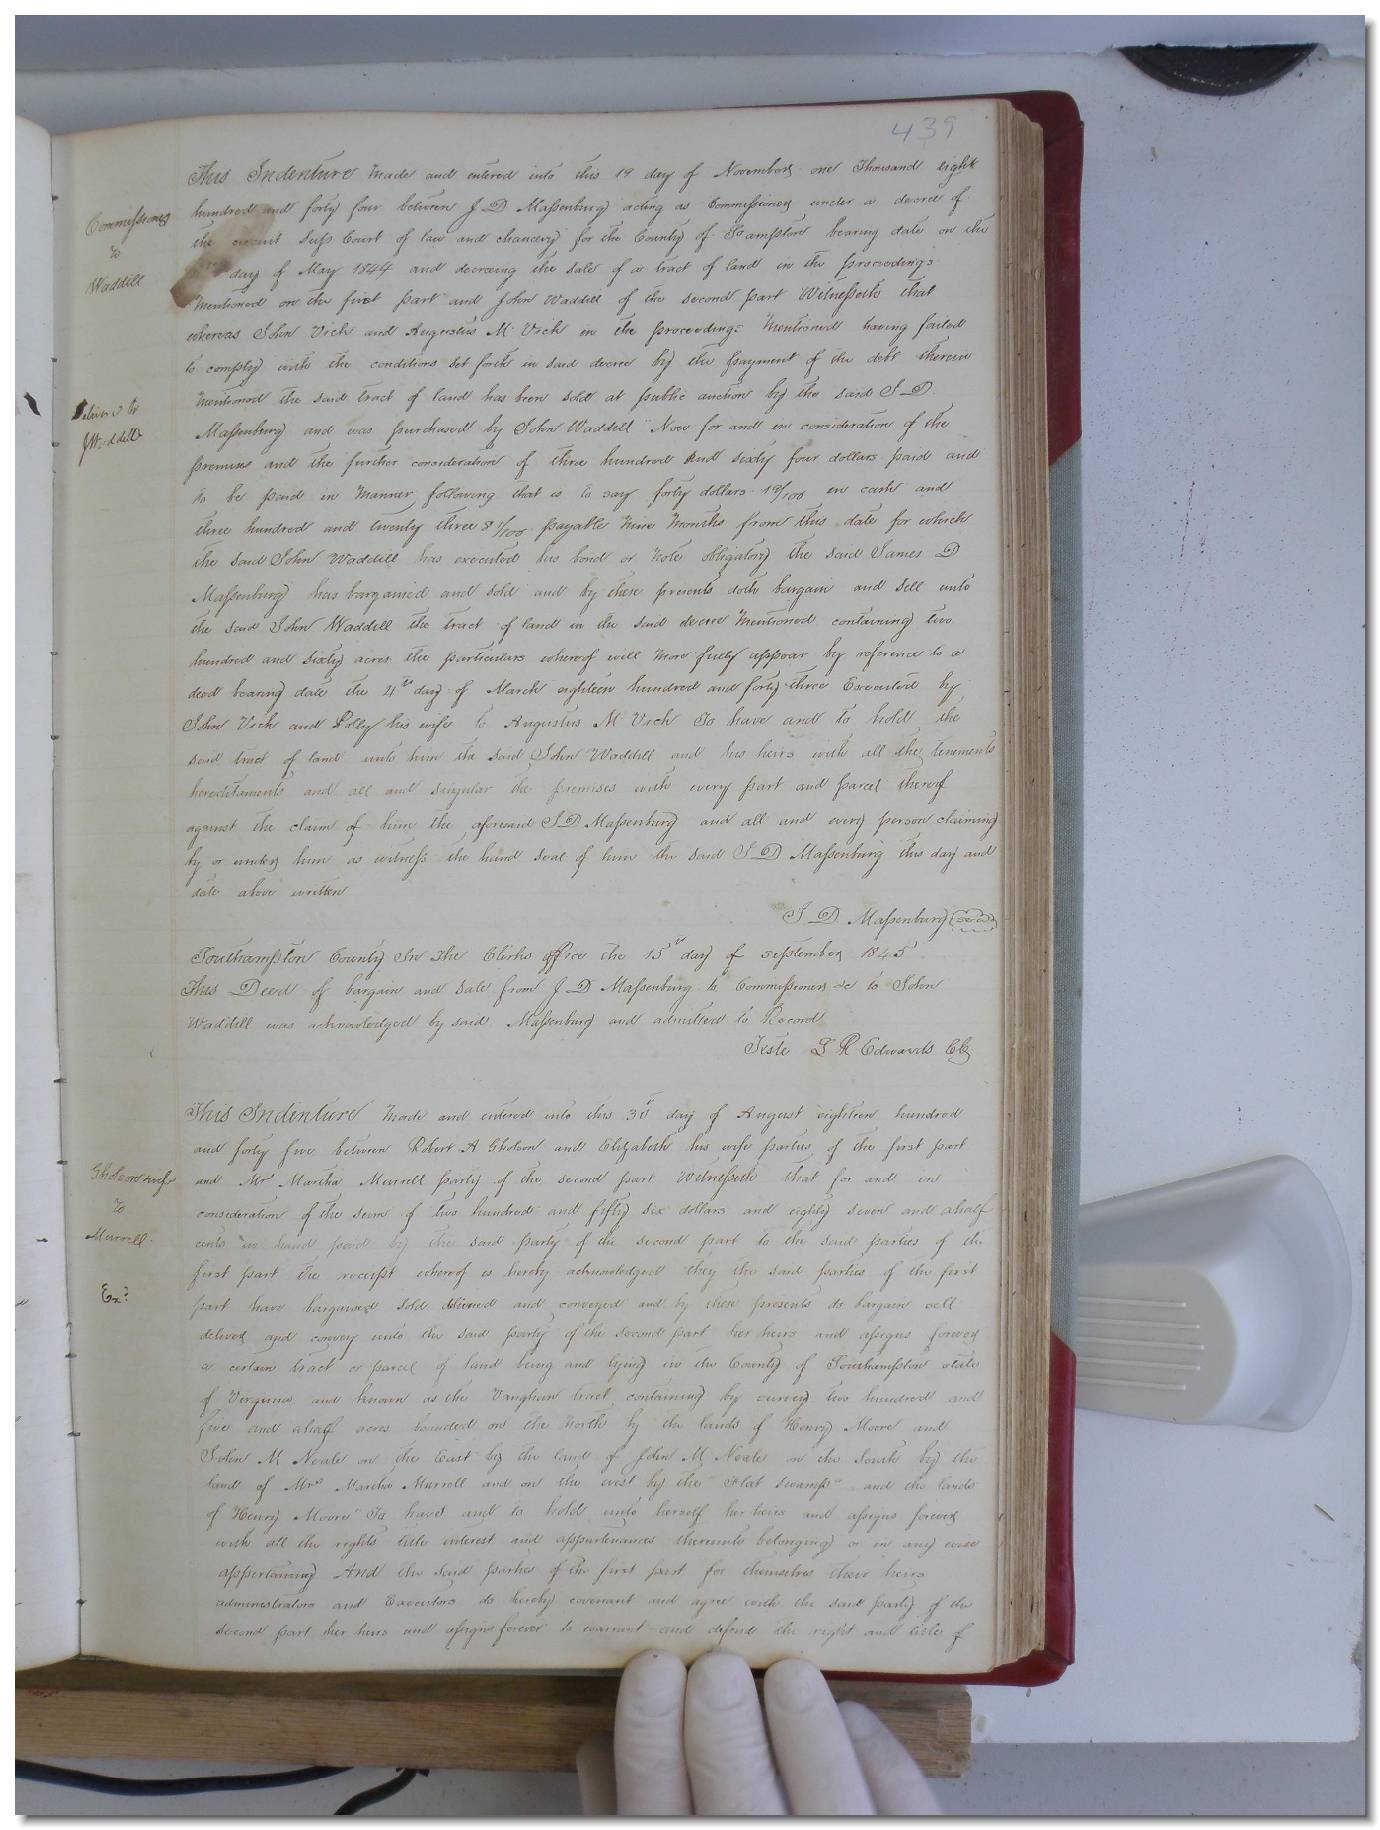 439
This Indenture Made and entered into this 19 day of November one Thousand eight
hundred and forty four between J D Massenburg acting as Commissioner under a decree of
Commissioner
the circuit Sup Court of law and chancery for the County of Southampton bearing date on the
to
day of May 1844 and decreeing the sale of a tract of land in the proceedings
Waddill
Mentioned on the first part and John Waddill of the second part Witnesseth that
whereas John Vick and Augustus M Vick in the proceedings Mentioned having failed
to comply with the conditions set forth in said decree by the payment of the debt therein
Mentioned the said tract of land has been sold at public auction by the said J D
Deliver'd to
J Waddill
Massenburg and was purchased by John Waddill Now for and in consideration of the
premises and the further consideration of three hundred And sixty four dollars paid and
to be paid in Manner following that is to say forty dollars 19/100 in cash and
three hundred and twenty three 81/100 payable Nine Months from this date for which
the said John Waddill has executed his bond or Note obligatory the said James D
Massenburg has bargained and sold and by these presents doth bargain and sell unto
the said John Waddill the tract of land in the said decree Mentioned containing two
hundred and sixty acres the particulars whereof will More fully appear by reference to a
deed bearing date the 4th day of March eighteen hundred and forty three Executed by
John Vick and Polly his wife to Augustus M Vick To have and to hold the
said tract of land unto him the said John Waddill and his heirs with all the tenements
hereditaments and all and singular the premises with every part and parcel thereof
against the claim of him the aforesaid J D Massenburg and all and every person claiming
by or under him as witness the hand seal of him the said J D Massenburg this day and
date above written
J D Massenburg (seal)
Southampton County In The Clerks office the 15th day of September 1845
This Deed of bargain and Sale from J D Massenburg to Commissioner &c to John
Waddill was acknowledged by said Massenburg and admitted to Record
Teste L R Edwards Clk
This Indenture Made and entered into this 30th day of August eighteen hundred
and forty five between Robert A Gholson and Elizabeth his wife parties of the first part
Gholson & wife
to
Murrell
and Mrs Martha Murrell party of the second part Witnesseth that for and in
consideration of the sum of two hundred and fifty six dollars and eighty seven and ahalf
cents in hand paid by the said party of the second part to the said parties of the
first part the receipt whereof is hereby acknowledged they the said parties of the first
Exd
part have bargained sold delivered and conveyed and by these presents do bargain sell
deliver and convey unto the said party of the second part her heirs and assigns forever
a certain tract or parcel of land being and lying in the County of Southampton state
of Virginia and known as the Vaughan tract containing by survey two hundred and
five and ahalf acres bounded on the North by the lands of Henry Moore and
John M Neale on the East by the land of John M Neale on the South by the
land of Mrs Martha Murrell and on the west by the "Flat Swamp" and the lands
of Henry Moore To have and to hold unto herself her heirs and assigns forever
with all the rights title interest and appurtenances thereunto belonging or in any wise
appertaining And the said parties of the first part for themselves their heirs
administrators and Executors do hereby covenant and agree with the said party of the
second part her heirs and assigns forever to warrant and defend the right and title of